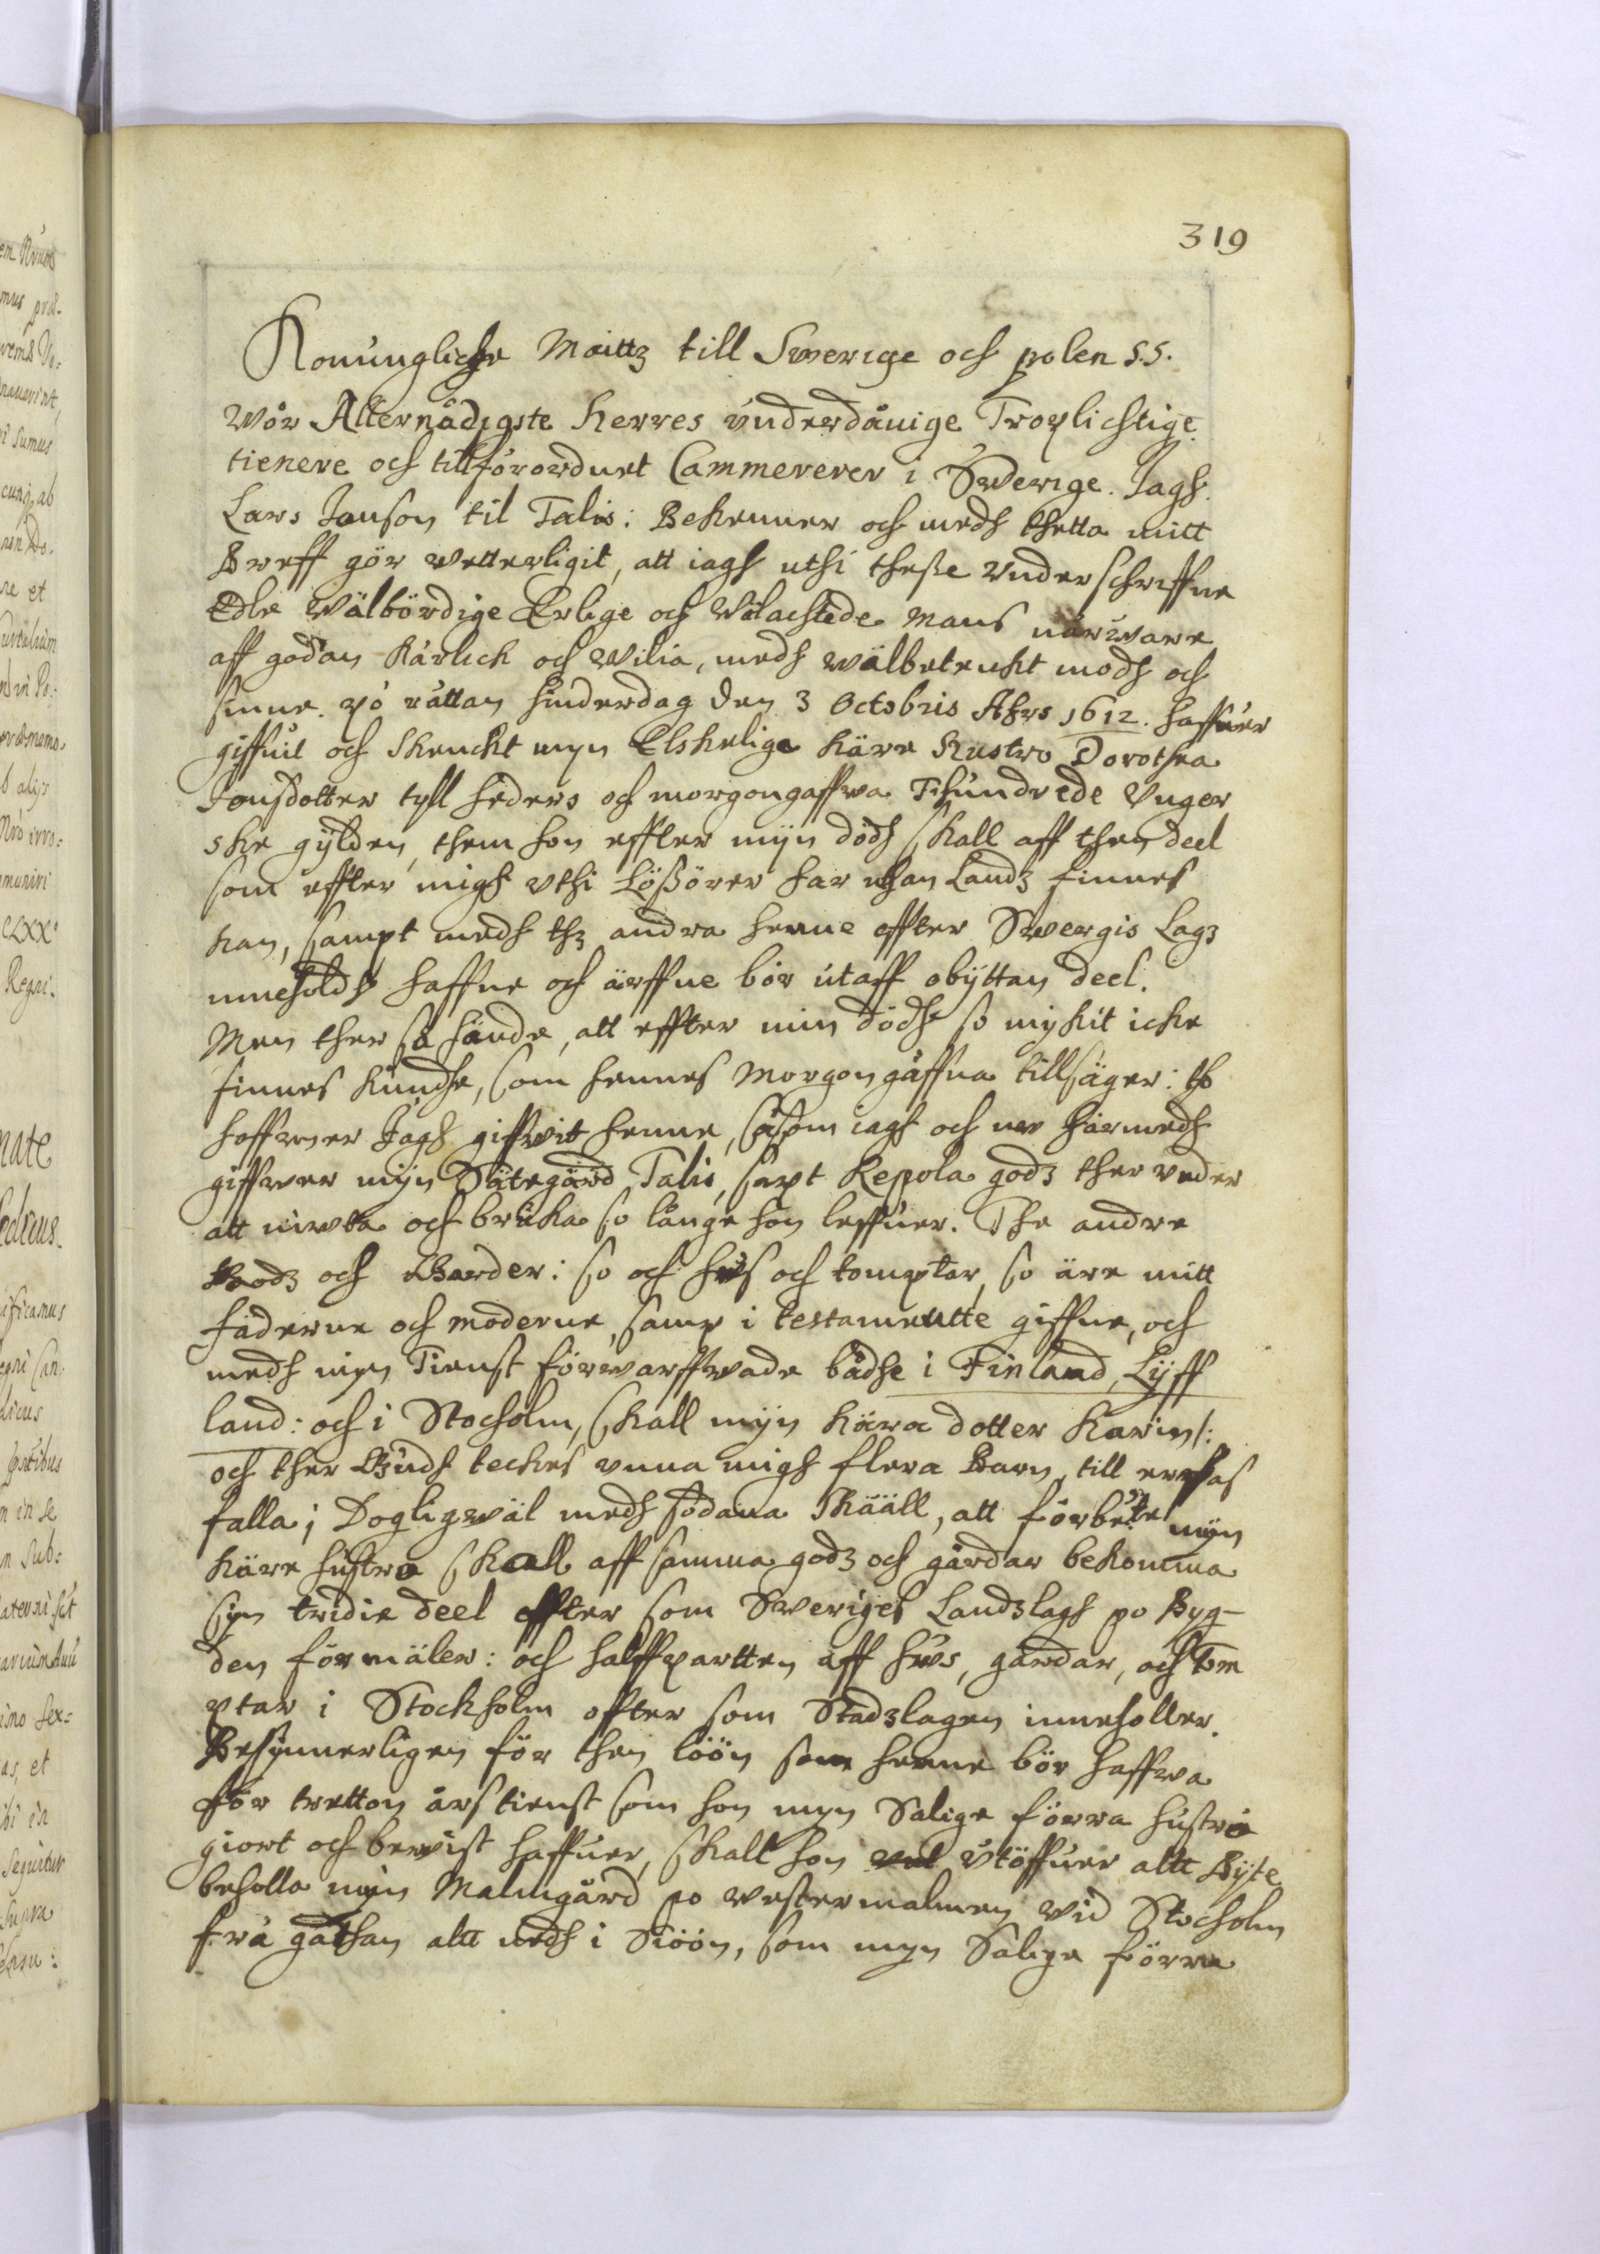 319
Konungliche Maittz till Swerige och polen S.S.
Wår Allernådigste Herres underdånige Troplichtige
tienere och tillförordnet Cammererer i Swerige. Jagh
Lars Jonson til Talis: Bekenner och medh thetta mitt
Breff gör wetterligit, att iagh uthi theße underschriffne
Edle Wälbördige Erlige och Wälachtede Mans närware
aff godan Kärlich och Wilia, medh wälbetenkt modh och
sinne. på rättan hinderdag den 3 Octobris Åhrs 1612. haffuer
giffuit och Skenckt myn Elskelige käre Hustro Dorothea
Jonsdotter tyll heders och morgongaffwa Tihundrede Unger
ske gylden, them hon effter mijn dödh skall aff then deel
som effter migh uthi Lößörer har uthan Landz finnes
kan, sampt medh thz andra henne effter Swergis Lagz
inneholdh haffue och ärffue bör utaff obyttan deel.
Men ther så hände, att effter min dödh so mykit icke
finnes kundhe, som hennes Morgongåffua tillsäger: tho
haffwer Jagh giffwit henne, såsom iagh och nw härmedh
giffwer mijn Sätegård Talis, sampt Repola godz ther under
att niwta och bruka so länge hon leffuer. The andre
Godz och Garder: so och hws och tomptar, so äre mitt
fäderne och moderne, samp i testamentte giffne, och
medh myn Tienst förwarffwade bådhe i Finland, Lyff
land: och i Stocholm, skall mijn kära dotter Karin /:
och ther Gudh teckes unna migh flera Barn, till
falla; Dogligwäl medh sådana Skääll, att förbe:te mijn
käre hustro skall aff samma godz och gårdar bekomma
sijn tridie deel effter som Sweriges Landzlagh po Byg-
den förmäler: och halffpartten aff hws, gårdar, och tom
ptar i Stockholm efter som Stadzlagen inneholler.
Besynnerligen för then löön som henne bör haffwa
för tretton årstienst som hon myn Salige förra hustro
giort och bewist haffuer, skall hon utöffuer altt Byte
beholla min Malmgård po Westermalmen Wid Stocholm
frå gathan altt nedh i Siöön, som myn Salige förra